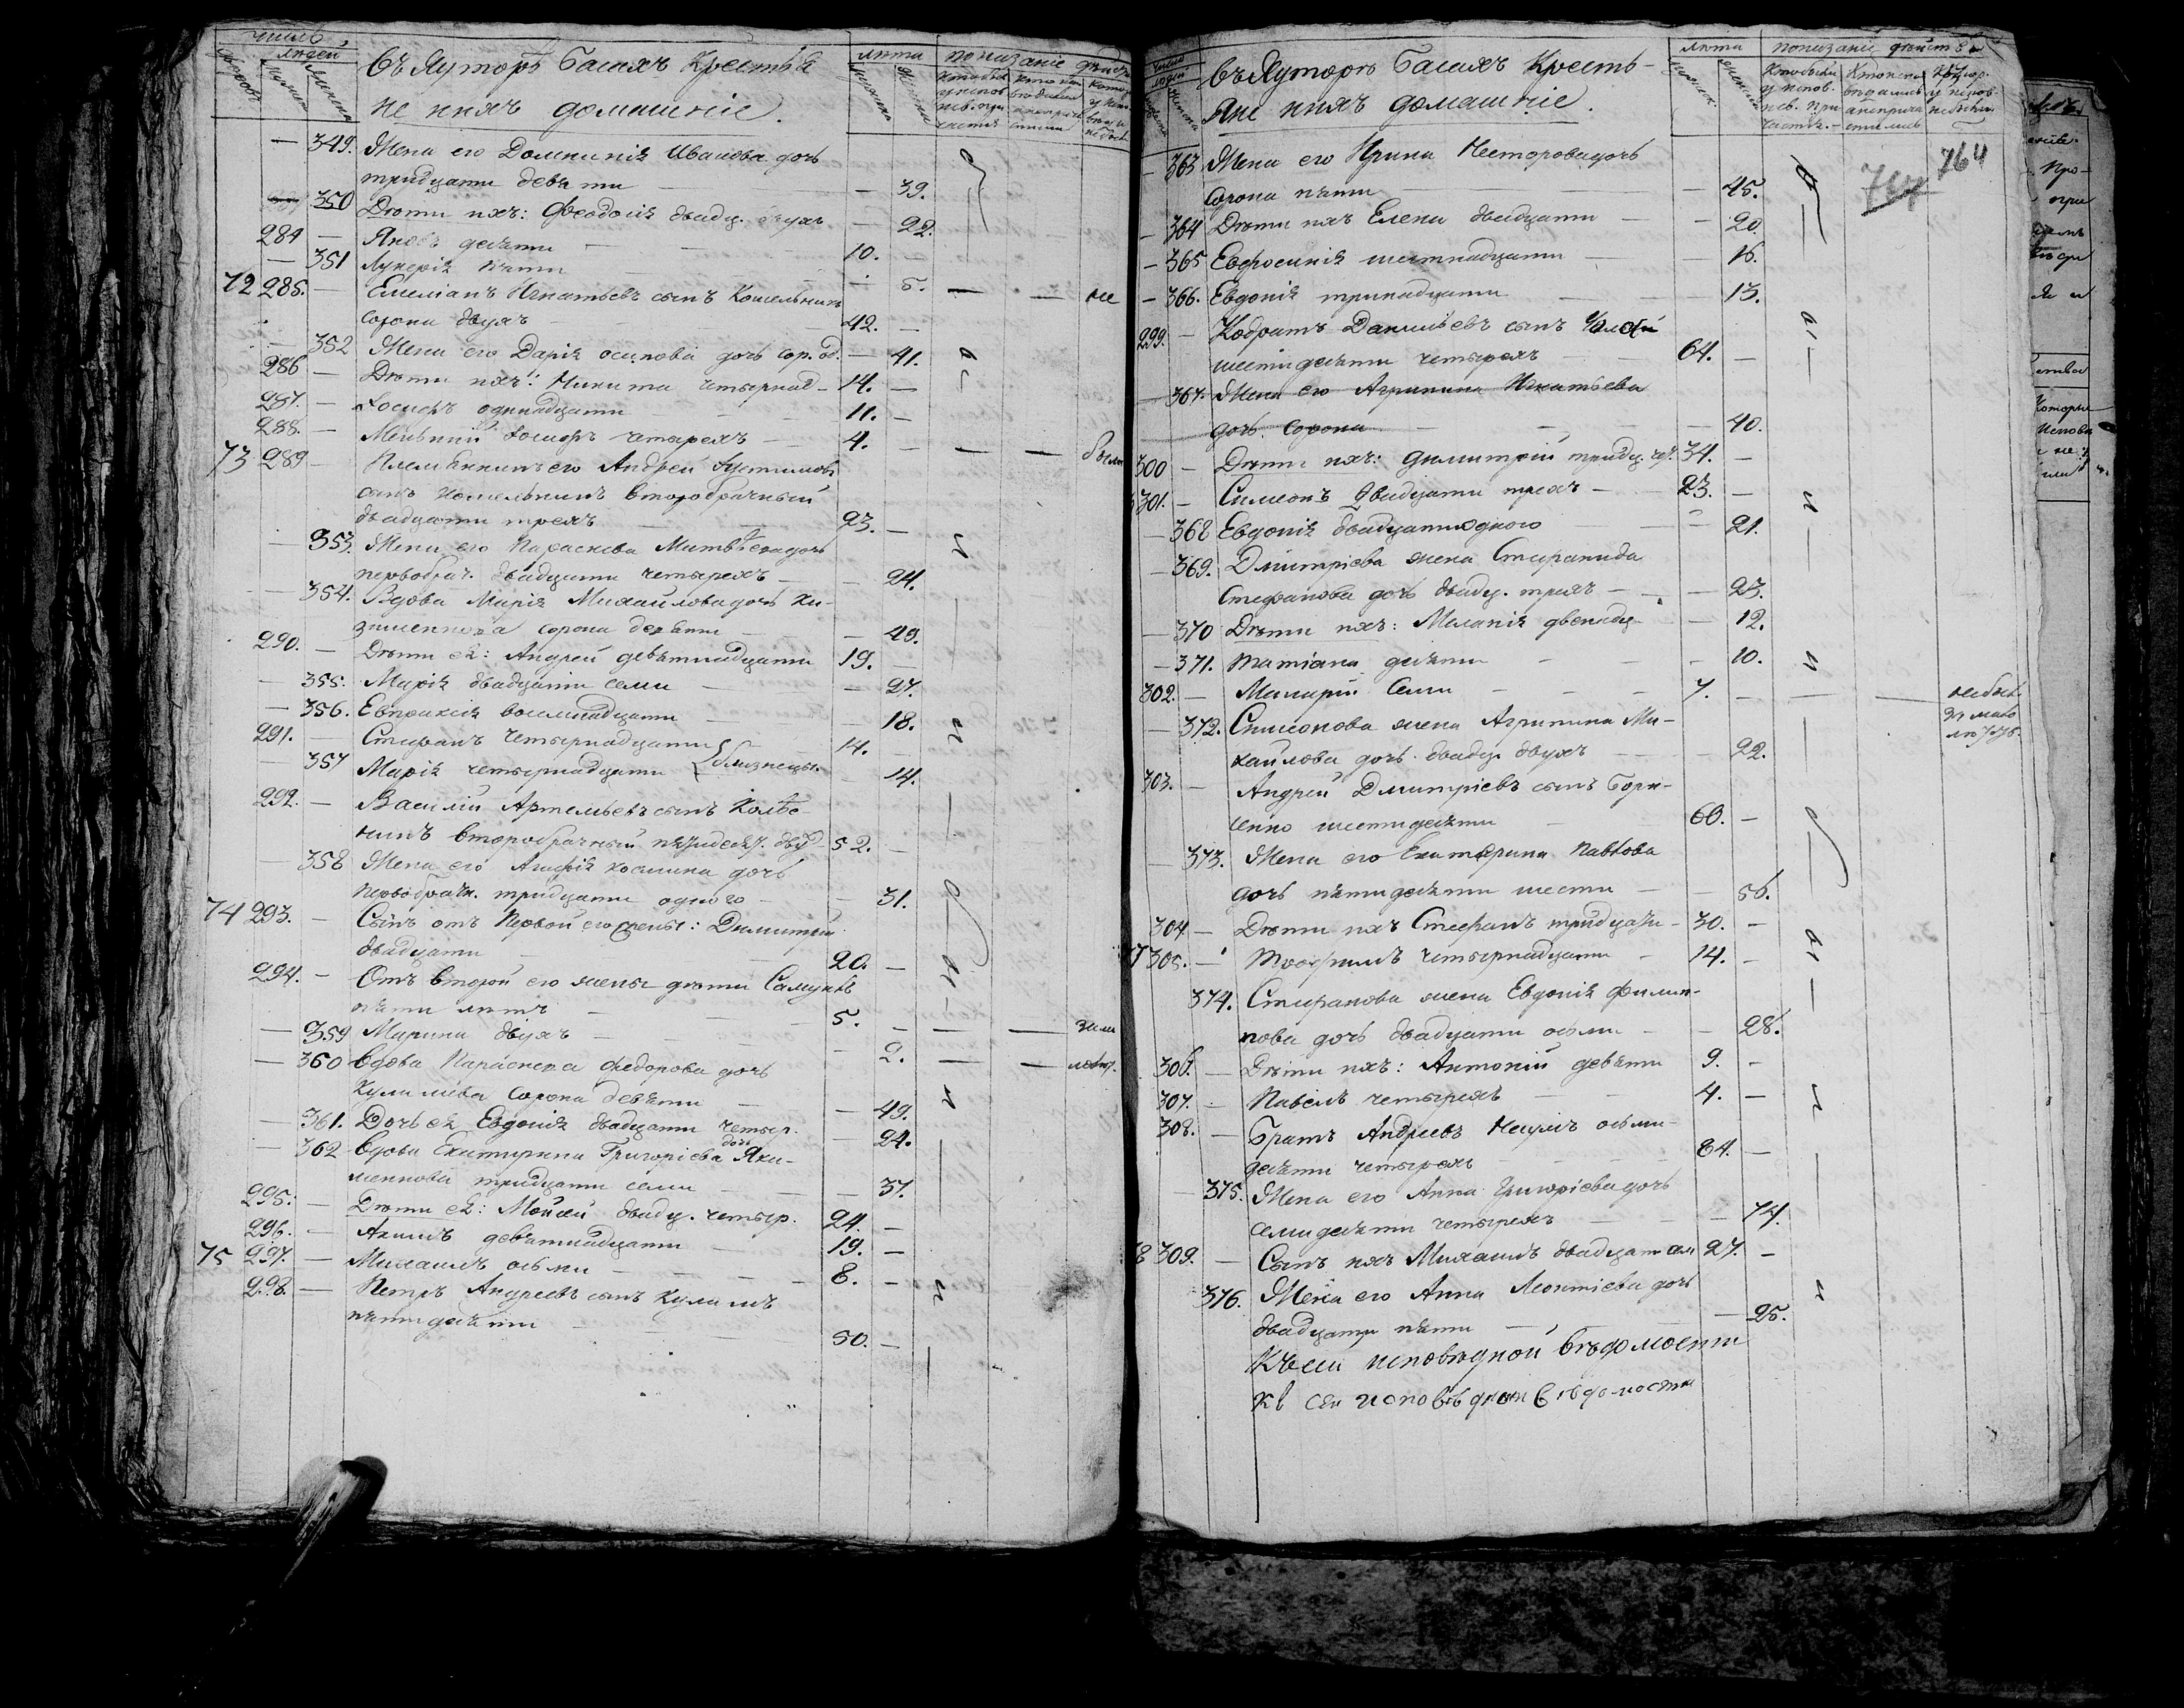 число
людей
лѣта
показаніе дѣйст
въ Хуторѣ Балахъ Крестья
не ихъ домашніе.
349. Жена его Домникія Иванова дочь
тридцати девяти — 39.
350 Дѣти ихъ: Феодосія двадц. двухъ — 22.
284 — Яковъ десяти — 10. —
— 351 Лукерія пяти — 5. — —
72 285. — Емеліанъ Игнатьевъ сынъ Кошельникъ не
сорока двухъ — 42. —
352 Жена его Дарія осипова дочь сор. од. — 41.
286 — Дѣти ихъ: Никита четырнад — 14. —
287. — Іосифъ одинадцати 11. —
288. — Меньшій Іосифъ четырехъ — 4. — — — были
73 289 — Племянникъ его Андрей
сынъ Кошельникъ второбрачный
двадцати трехъ 23. —
— 353. Жена его Параскева Матвѣева дочь
первобрач. двадцати четырехъ — — 24.
— 354. Вдова Марія Михайлова дочь Ки-
зименкова сорока девяти — — 49.
290. — Дѣти ея: Андрей девятнадцати 19. —
— 355. Марія двадцати семи — — 27.
— 356. Евпраксія восемнадцати — 18.
291. — Стефанъ четырнадцати 14. —
— 357 Марія четырнадцати } близнецы. — 14.
292. — Василій Артемьевъ сынъ Колѣс-
никъ второбрачный пятидесят. двух 52. —
— 358 Жена его Агафія космина дочь
первобрачн. тридцати одного — — 31.
74 293. — Сынъ отъ первой его жены: Димитрій
двадцати — 20. —
294. — Отъ второй его жены дѣти Самуилъ
пяти лѣтъ — 5. — — —
— 359 Марина двухъ — 2. — —
— 360 Вдова Параскева Федорова дочь
сорока девяти — — 49.
— 361. Дочь ея Евдокія двадцати четыр. — 24.
— 362 Вдова Екатерина Григоріева дочь Яки-
менкова тридцати семи — 37.
295. — Дѣти ея: Мойсей двадц. четыр. 24. —
296. — Акимъ девятнадцати — 19. —
75 297. — Михаилъ осьми — 8. —
298. — Петръ Андреевъ сынъ Кулишъ
пятидесяти — 50. —
лѣта
показаніе дѣйств
въ Хуторѣ Балахъ Кресть-
яне ихъ домашніе.
764
— 363 Жена его Ирина Несторова дочь
сорока пяти — — 45.
— 364 Дѣти ихъ Елена двадцати — — 20.
— 365 Евфросинія шестнадцати — — 16.
— 366. Евдокія тринадцати — 13.
299. — Кодратъ Даніиловъ сынъ
шестидесяти четырехъ — 64. —
— 367. Жена его Агрипина Игнатьева
дочь сорока — — 40.
300 — Дѣти ихъ: Димитрій тридц. чет. 34. —
301. — Симеонъ двадцати трехъ — 23. —
— 368 Евдокія двадцати одного — 21.
— 369. Дмитріева жена Стефанида
Стефанова дочь двадц. трехъ — — 23.
— 370 Дѣти ихъ: Меланія двенадц. — 12.
— 371. Татіана десяти — — 10.
302. — Макарій семи — 7. — — — небыл.
за мало
лѣтст.
— 372. Симеонова жена Агрипина Ми-
хайлова дочь двадц. двухъ — 22.
303. — Андрей Дмитріевъ сынъ Бори-
сенко шестидесяти — 60. —
— 373. Жена его Екатерина Павлова
дочь пятидесяти шести — — 56.
304 — Дѣти ихъ Стефанъ тридцати — 30. —
305. — Трофимъ четырнадцати — 14. —
374. Стефанова жена Евдокія Филип-
пова дочь двадцати осьми — — 28.
306. — Дѣти ихъ: Антоній девяти 9. —
307. — Павелъ четырехъ — 4. —
308. — Братъ Андреевъ Наумъ осьми-
десяти четырехъ — 84. —
— 375. Жена его Анна Григоріева дочь
семидесяти четырехъ — — 74.
309. — Сынъ ихъ Михаилъ двадцати сем 27. —
376. Жена его Анна Леонтіева дочь
двадцати пяти — — 25.
Къ сей исповѣдной вѣдомости
Къ сей исповѣдной вѣдомости